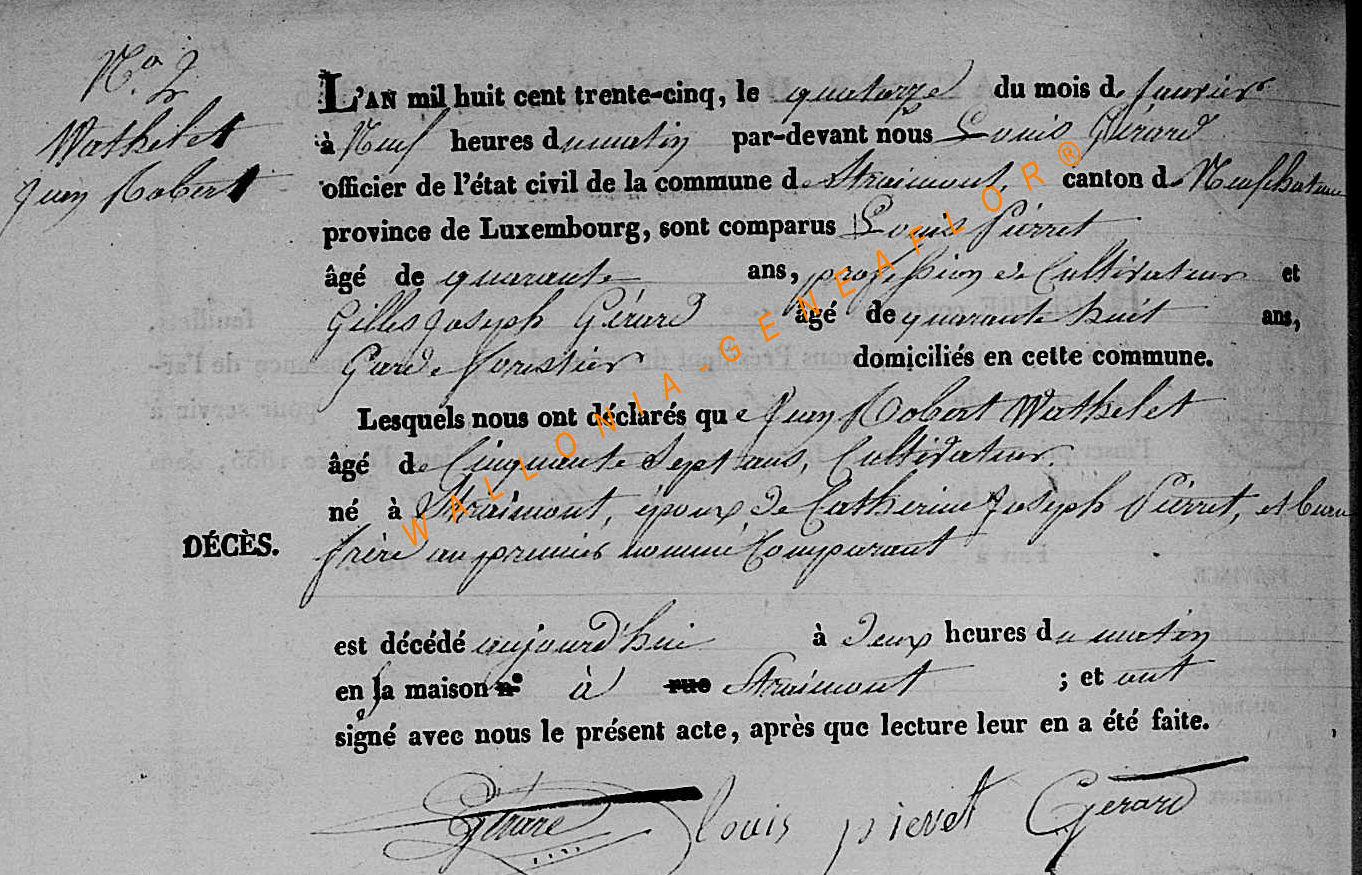 N.º 2
Wathelet
Jean Robert
L'AN mil huit cent trente-cinq, le quatorze du mois de Janvier
à Neuf heures du matin par-devant nous Louis Gérard
officier de l'état civil de la commune de Straimont, canton de Neufchateau
province de Luxembourg, sont comparus Louis Pierret
âgé de quarante ans, profession de Cultivateur et
Gilles Joseph Gérard âgé de quarante huit ans,
Garde forestier domiciliés en cette commune.
Lesquels nous ont déclarés que Jean Robert Wathelet
âgé de Cinquante Sept ans, Cultivateur.
né à Straimont, époux de Catherine Joseph Pierret, et beau
DÉCÈS.
frère au premier nommé Comparant
est décédé aujourd'hui à deux heures du matin
en sa maison n° à rue Straimont ; et ont
signé avec nous le présent acte, après que lecture leur en a été faite.
Gérard louis pierret Gérard
WALLONIA-GENEAFLOR®